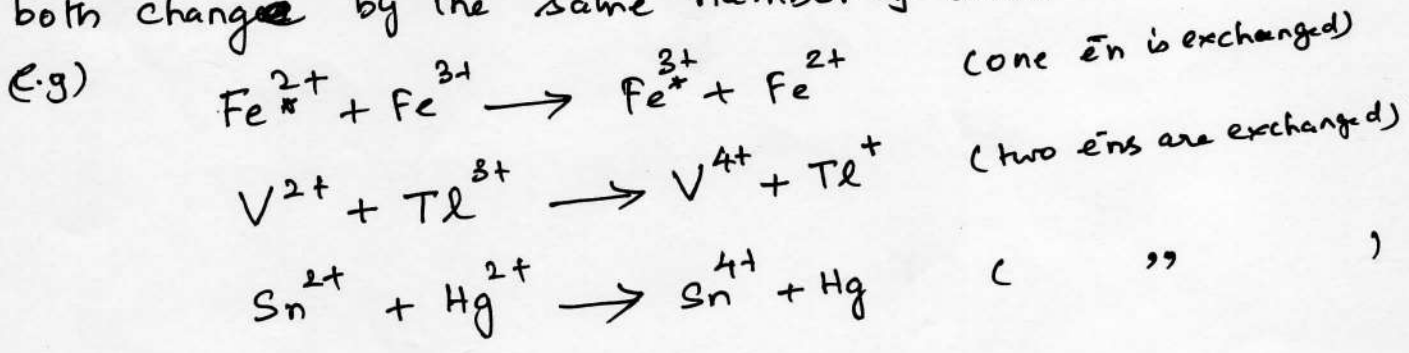 both change by the same number
e.g) Fe*²⁺ + Fe³⁺ → Fe*³⁺ + Fe²⁺ (one ēn is exchanged)
V²⁺ + Tl³⁺ → V⁴⁺ + Tl⁺ (two ēns are exchanged)
Sn²⁺ + Hg²⁺ → Sn⁴⁺ + Hg ( ,, )